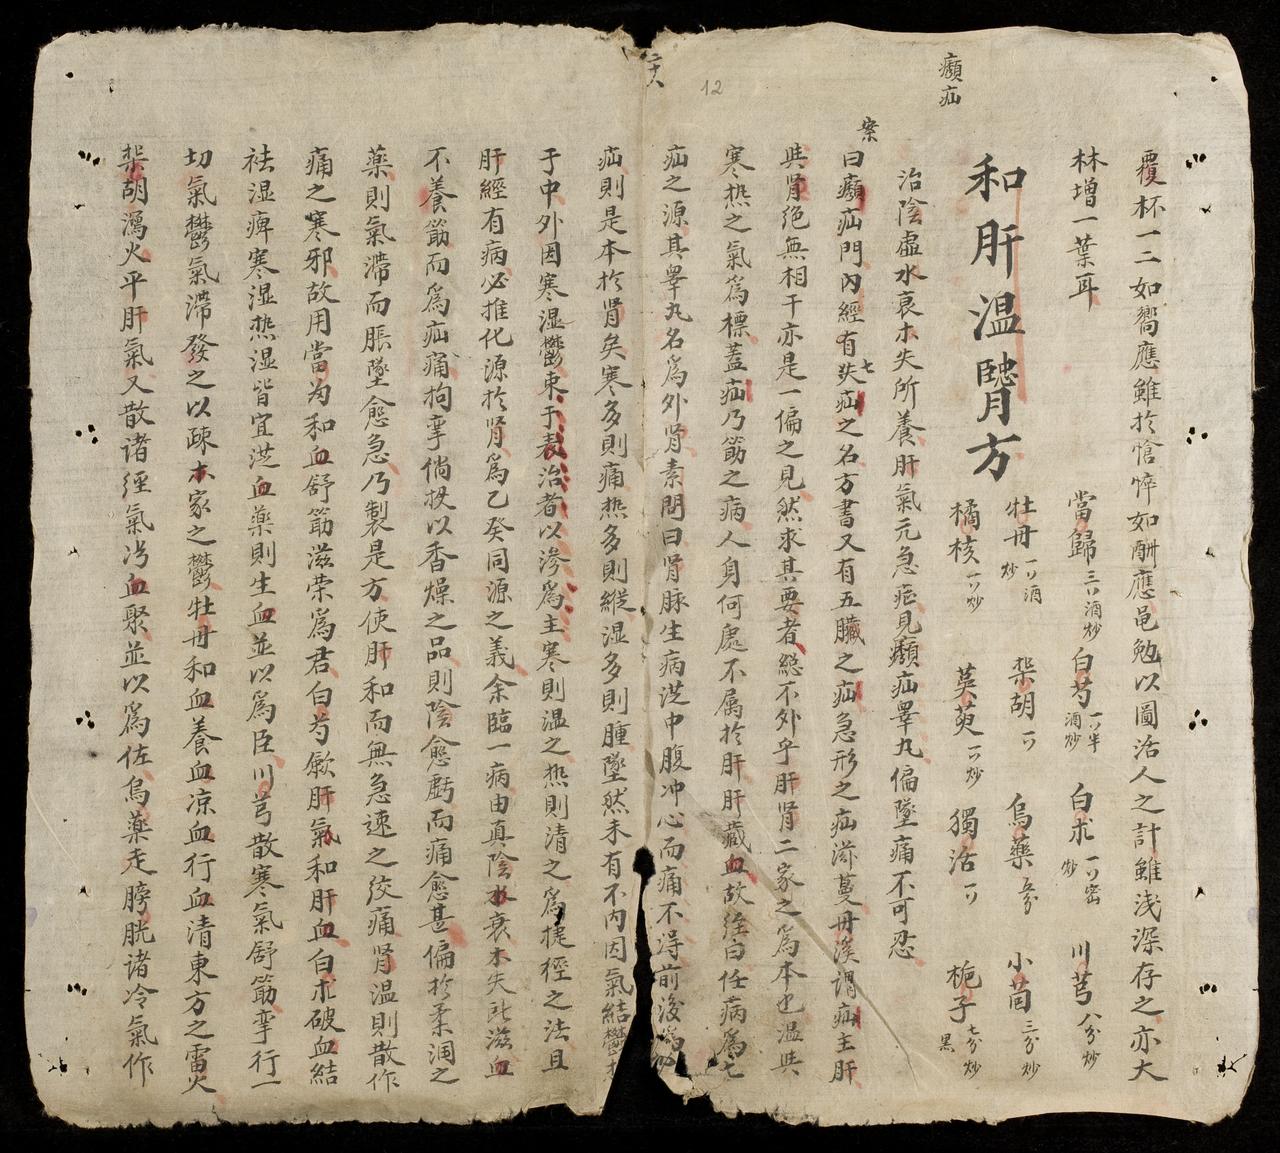 覆杯一二如嚮應雖於愴悴如酬應邑勉以圖活人之計雖浅深存之亦大
林増一葉耳
癲疝
和肝温腎方
當歸三ロ酒炒 白芍一ロ半酒炒 白朮一ロ密炒 川芎八分炒
牡丹一ロ酒炒 柴胡一ロ 烏藥五分 小茴三分炒
橘核一ロ炒 萸萸一ロ炒 獨活一ロ 梔子七分炒黒
治陰虚水衰木失所養肝氣元急症見癲疝睪丸偏墜痛不可忍
案
曰癲疝門内經有七疝之名方書又有五臓之疝急形之疝滋蔓丹溪謂疝主肝
與肾绝無相干亦是一偏之見然求其要者総不外乎肝肾二家之為本也温與
寒热之氣為標蓋疝乃筋之病人身何處不属於肝肝蔵血故経曰任病為七
疝之源其睪丸名為外肾素問曰肾脉生病従中腹冲心而痛不得前後為
疝則是本於肾矣寒多則痛热多則縦湿多則腫墜然未有不内因氣結鬱
于中外因寒湿鬱束于表治者以滲為主寒則温之热則清之為捷徑之法且
肝經有病必推化源於肾為乙癸同源之義余臨一病由真陰水衰木失所滋血
不養筋而為疝痛拘挛倘投以香燥之品則陰愈虧而痛愈甚偏於柔润之
薬則氣滞而脹墜愈急乃製是方使肝和而無急速之绞痛肾温則散作
痛之寒邪故用當为和血舒筋滋荣為君白芍歛肝氣和肝血白朮破血結
祛湿痺寒湿热湿皆宜従血藥則生血並以為臣川芎散寒氣舒筋挛行一
切氣鬱氣滞發之以疎木家之鬱牡丹和血養血凉血行血清東方之雷火
柴胡瀉火平肝氣又散诸經氣冯血聚並以為佐烏薬走膀胱诸冷氣作
十八
12